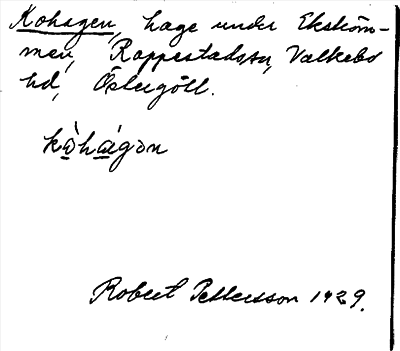 Kohagen, hage under Ekström-
men, Rappestads sn, Valkebo
hd, Östergötl.
kòhágən
Robert Pettersson 1929.